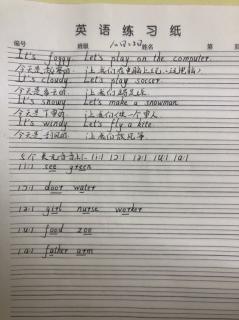 英语练习纸
编号 班级 姓名 第 页
It's foggy. Let's play on the computer.
今天是 的. 让我们在电脑上玩.
It's cloudy. Let's play soccer.
今天是多云的. 让我们踢足球
It's snowy. Let's make a snowman
今天下雪的. 让我们做一个雪人
It's windy Let's fly a kite
今天是刮风的. 让我们放风筝.
5个长元音音标 /i:/ /ɔ:/ /ɜ:/ /u:/ /ɑ:/
/i:/ see green
/ɔ:/ door water
/ɜ:/ girl nurse worker
/u:/ food zoo
/ɑ:/ father arm